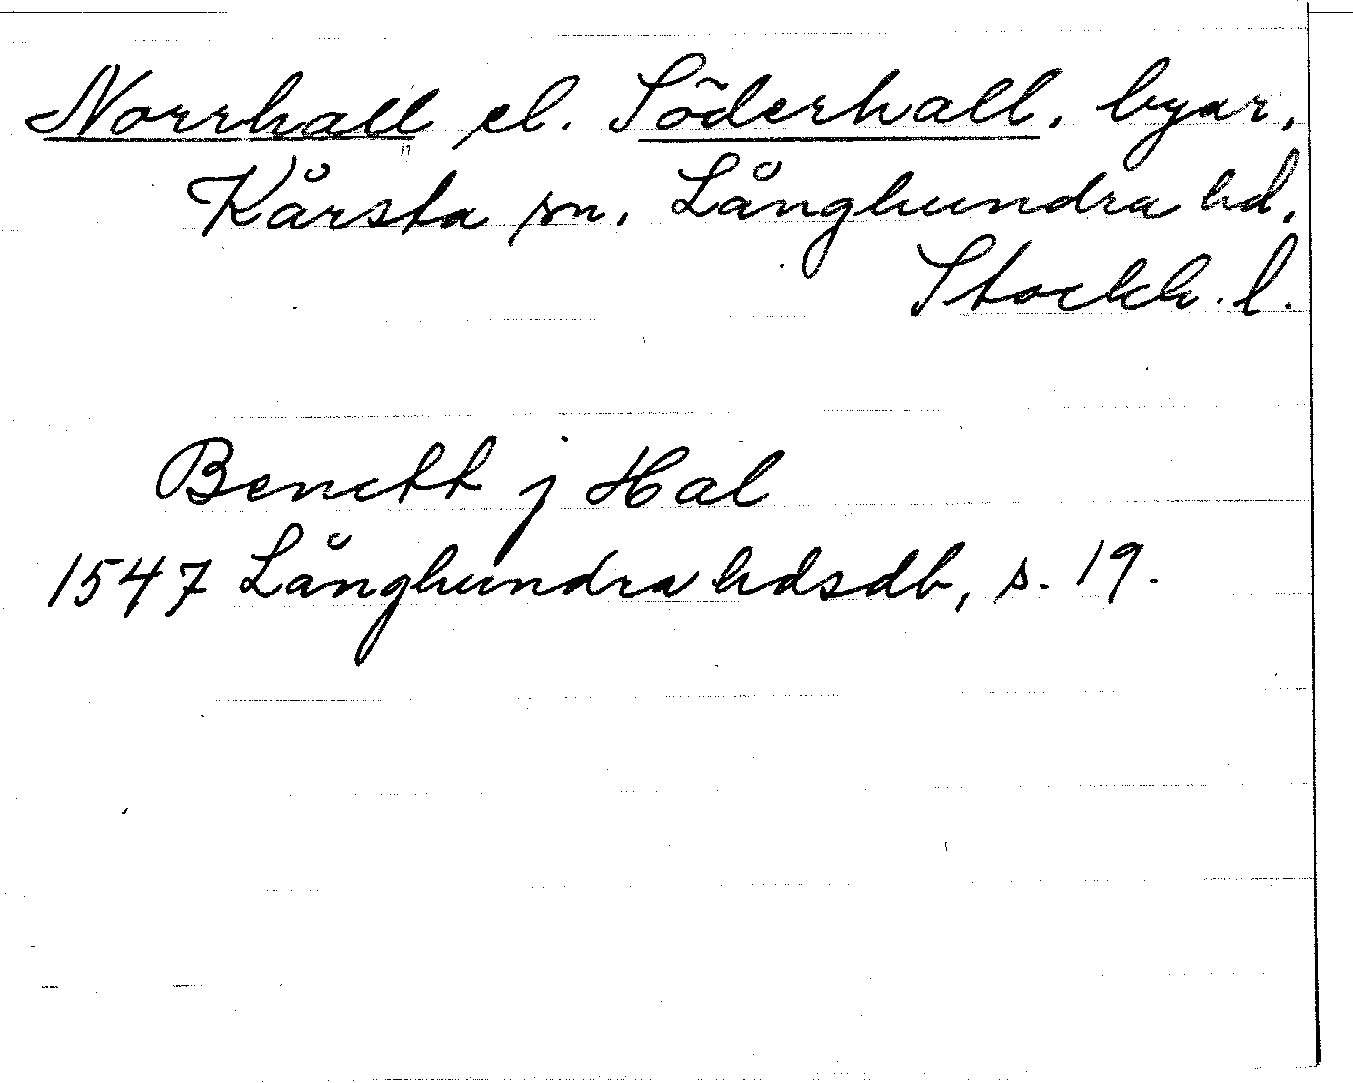 Norrhall el. Söderhall, byar,
Kårsta sn, Långhundra hd,
Stockh. l.
Benctt j Hal
1547 Långhundra hdsdb, s. 19.